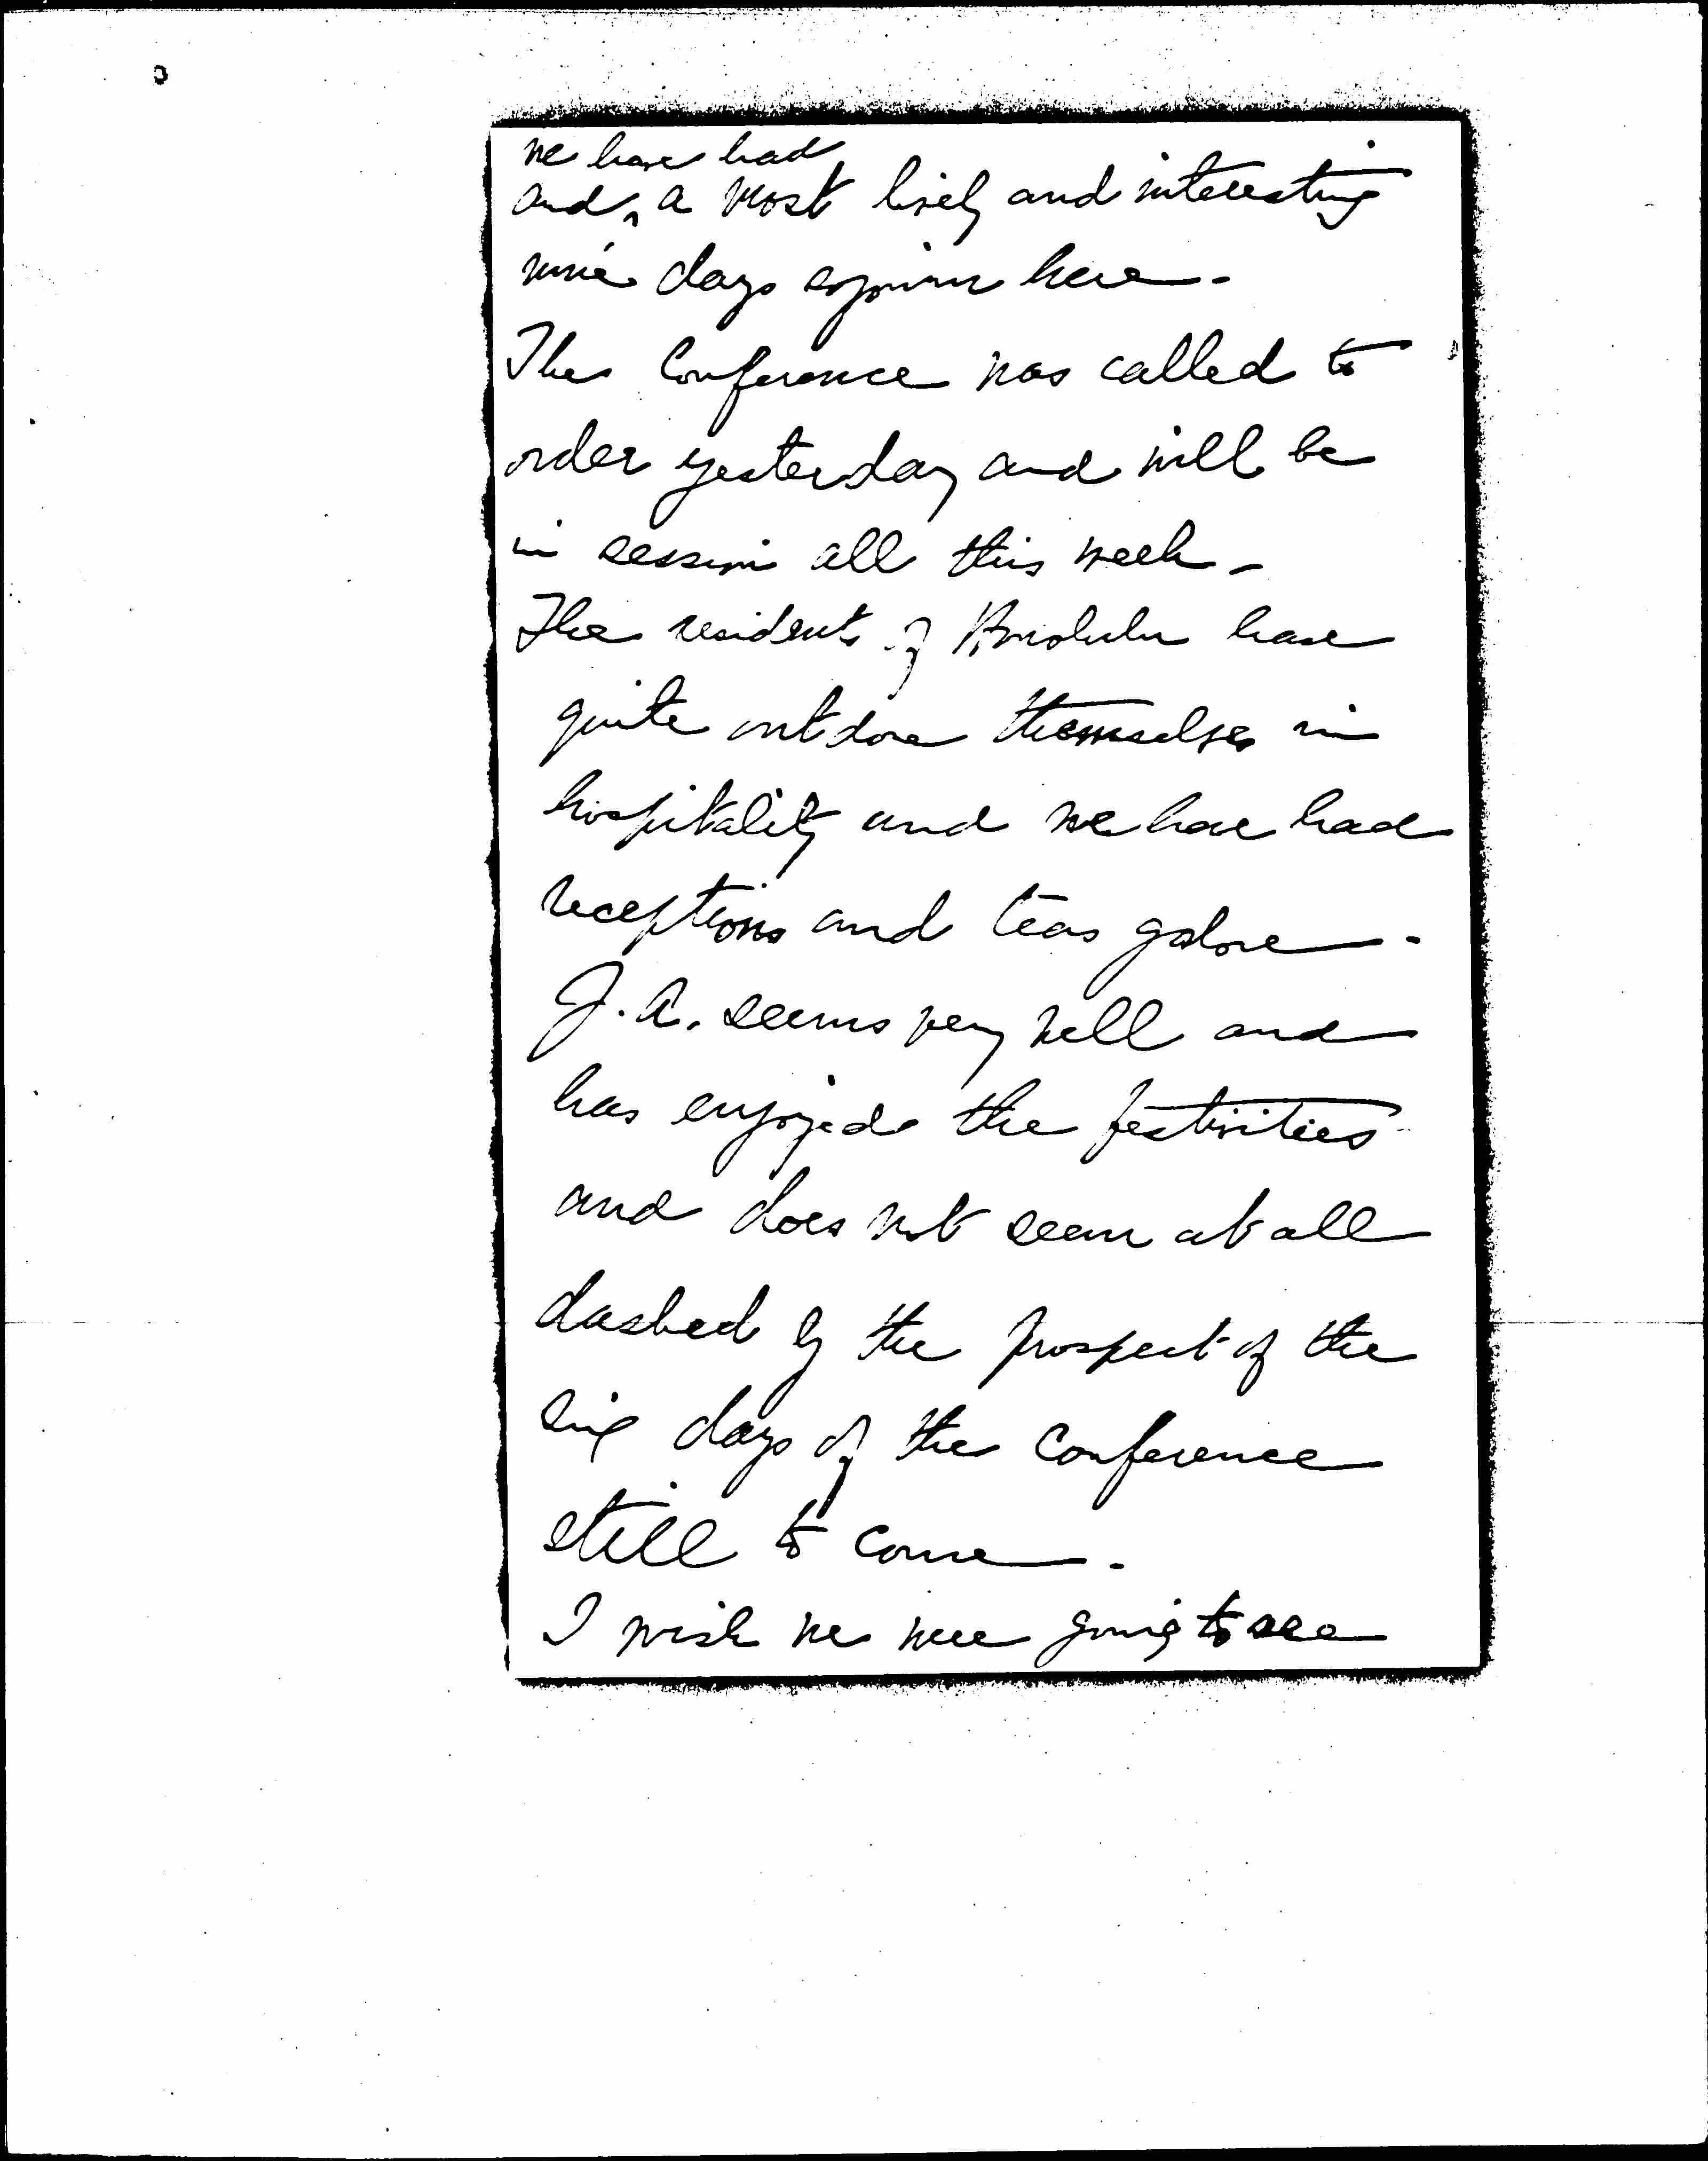 we have had
and ^ a most lively and interesting
nine days sojourn here -
The Conference was called to
order yesterday and will be
in session all this week -
The residents of Honolulu have
quite outdone themselves in
hospitality and we have had
receptions and teas galore -
J. A. seems very well and
has enjoyed the festivities
and does not seem at all
dashed by the prospect of the
six days of the Conference
still to come -
I wish we were going to see